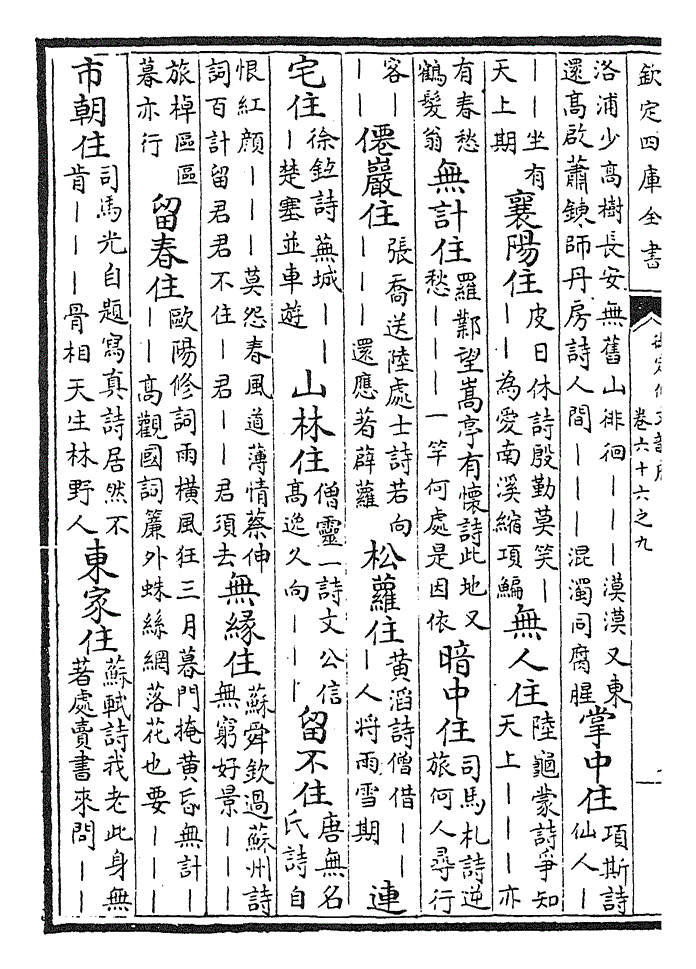 欽定四庫全書
卷六十六之九
洛浦少高樹長安無舊山徘徊｜｜｜漠漠又東
還高啟蕭鍊師丹房詩人間｜｜｜混濁同腐腥
掌中住
項斯詩
仙人｜
｜｜坐有
天上期
襄陽住
皮日休詩殷勤莫笑｜
｜｜為愛南溪縮項鯿
無人住
陸龜蒙詩爭知
天上｜｜｜亦
有春愁
鶴髮翁
無計住
羅鄴望嵩亭有懷詩此地又
愁｜｜｜一竿何處是因依
暗中住
司馬札詩逆
旅何人尋行
客｜
｜｜
僊巖住
張喬送陸處士詩若向
｜｜｜還應著薜蘿
松蘿住
黃滔詩僧借｜｜
｜人將雨雪期
連
宅住
徐鉉詩蕪城｜｜
｜楚塞並車遊
山林住
僧靈一詩文公信
高逸久向｜｜｜
留不住
唐無名
氏詩自
恨紅顏｜｜｜莫怨春風道薄情蔡伸
詞百計留君君不住｜君｜｜君須去
無緣住
蘇舜欽過蘇州詩
無窮好景｜｜｜
旅棹區區
暮亦行
留春住
歐陽修詞雨橫風狂三月暮門掩黃昏無計｜
｜｜高觀國詞簾外蛛絲網落花也要｜｜｜
市朝住
司馬光自題寫真詩居然不
肯｜｜｜骨相天生林野人
東家住
蘇軾詩我老此身無
著處賣書來問｜｜